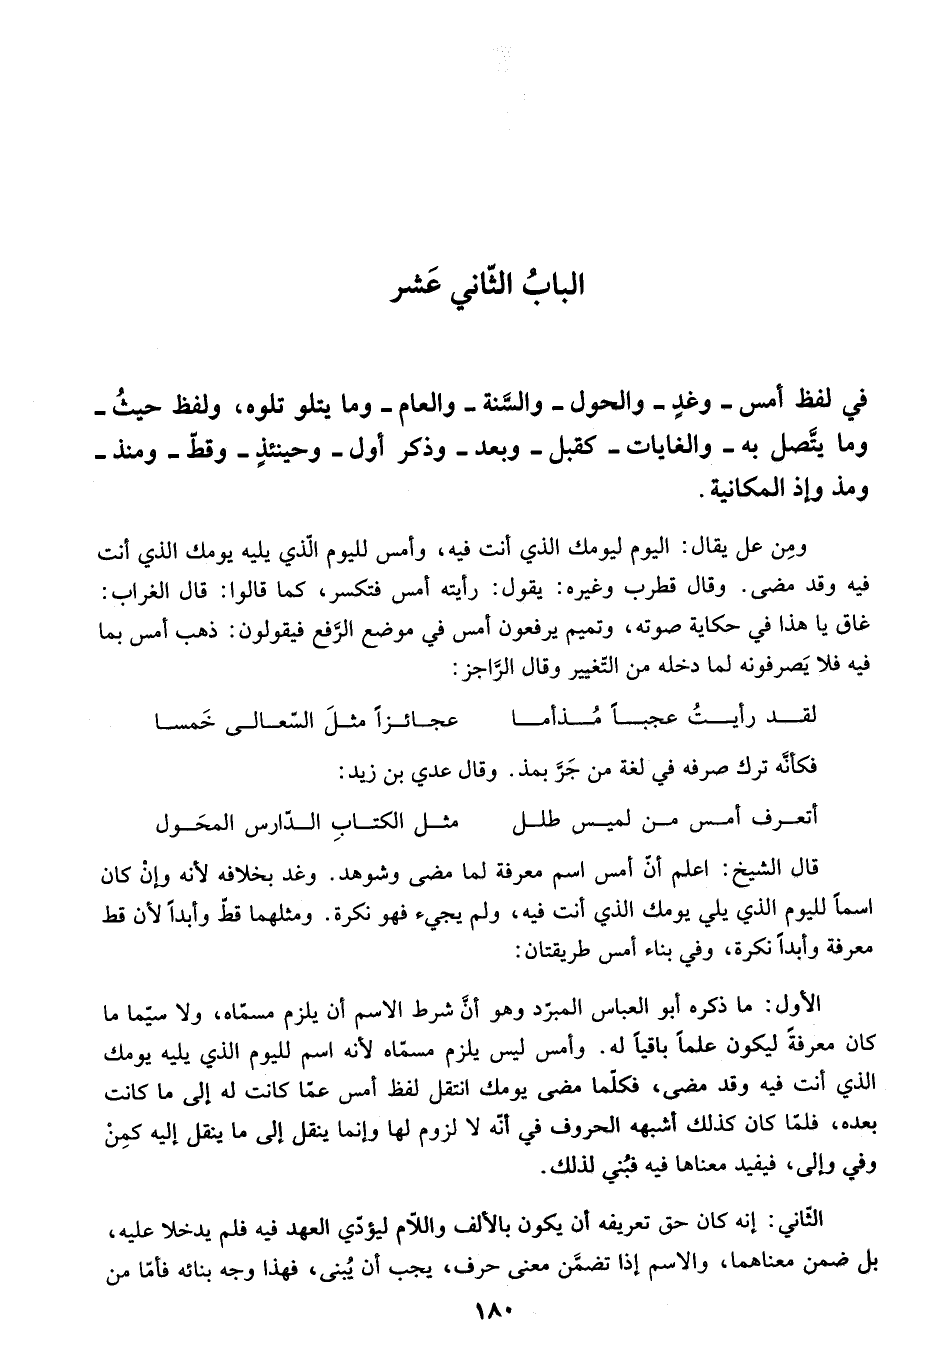 البابُ الثّاني عَشر
في لفظ أمس ـ وغدٍ ـ والحول ـ والسَّنة ـ والعام ـ وما يتلو تلوه، ولفظ حيثُ ـ
وما يتَّصل به ـ والغايات ـ كقبل ـ وبعد ـ وذكر أول ـ وحينئذٍ ـ وقطّ ـ ومنذ ـ
ومذ وإذ المكانية .
ومِن عل يقال: اليوم ليومك الذي أنت فيه، وأمس لليوم الّذي يليه يومك الذي أنت
فيه وقد مضى. وقال قطرب وغيره: يقول: رأيته أمس فتكسر، كما قالوا: قال الغراب:
غاق يا هذا في حكاية صوته، وتميم يرفعون أمس في موضع الرَّفع فيقولون: ذهب أمس بما
فيه فلا يَصرفونه لما دخله من التّغيير وقال الرَّاجز:
لقـد رأيـتُ عجبـاً مُـذأمـا عجـائـزاً مثـلَ السّعـالـى خَمسـا
فكأنَّه ترك صرفه في لغة من جَرَّ بمذ. وقال عدي بن زيد:
أتعـرف أمـس مـن لميـس طلـل مثـل الكتـابِ الـدّارس المحَـول
قال الشيخ: اعلم أنّ أمس اسم معرفة لما مضى وشوهد. وغد بخلافه لأنه وإنْ كان
اسماً لليوم الذي يلي يومك الذي أنت فيه، ولم يجيء فهو نكرة. ومثلهما قطّ وأبداً لأن قط
معرفة وأبداً نكرة، وفي بناء أمس طريقتان:
الأول: ما ذكره أبو العباس المبرّد وهو أنَّ شرط الاسم أن يلزم مسمّاه، ولا سيّما ما
كان معرفةً ليكون علماً باقياً له. وأمس ليس يلزم مسمّاه لأنه اسم لليوم الذي يليه يومك
الذي أنت فيه وقد مضى، فكلّما مضى يومك انتقل لفظ أمس عمّا كانت له إلى ما كانت
بعده، فلمّا كان كذلك أشبهه الحروف في أنّه لا لزوم لها وإنما ينقل إلى ما ينقل إليه كمِنْ
وفي وإلى، فيفيد معناها فيه فبُني لذلك.
الثّاني: إنه كان حق تعريفه أن يكون بالألف واللاّم ليؤدّي العهد فيه فلم يدخلا عليه،
بل ضمن معناهما، والاسم إذا تضمَّن معنى حرف، يجب أن يُبنى، فهذا وجه بنائه فأمّا من
١٨٠